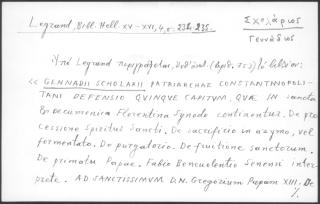 Legrand, Bibl. Hell. XV-XVI, 4, σ. 234-235.
Σχολάριος
Γεννάδιος
Ὑπὸ Legrand περιγράφεται,
« GENNADII SCHOLARII PATRIARCHAE CONSTANTINOPOLI-
TANI DEFENSIO QUINQUE CAPITUM, QUÆ IN sancta
& œcumenica Florentina Synodo continentur. De pro
cessione Spiritus Sancti. De sacrificio in azymo, vel
fermentato. De purgatorio. De fruitione sanctorum.
De primatu Papae. Fabio Benevolentio Senensi inter
prete. AD SANCTISSIMUM D.N. Gregorium Papam XIII. De
%